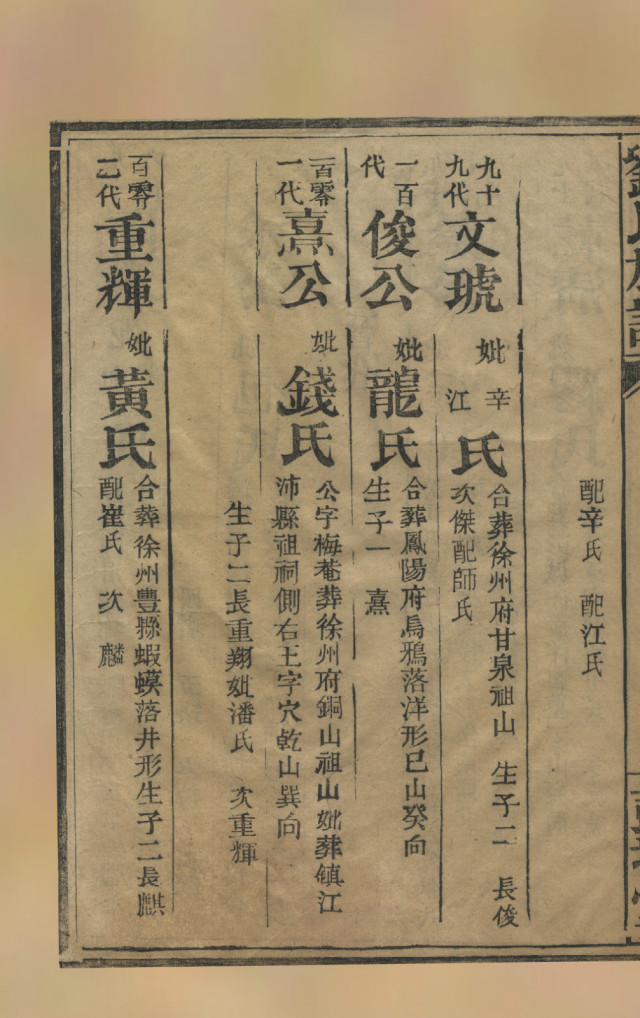 劉氏族譜
配辛氏 配江氏
九十九代 文琥 妣辛江氏 合葬徐州府甘泉祖山 生子二 長俊
次傑配師氏
一百代 俊公 妣龍氏 合葬鳳陽府烏鴉落洋形巳山癸向
生子一 熹
一百零一代 熹公 妣錢氏 公字梅菴葬徐州府銅山祖山妣葬鎮江
沛縣祖祠側右王字穴乾山巽向
生子二長重翔妣潘氏 次重輝
百零二代 重輝 妣黃氏 合葬徐州豐縣蝦蟆落井形生子二長麒
配崔氏 次麟